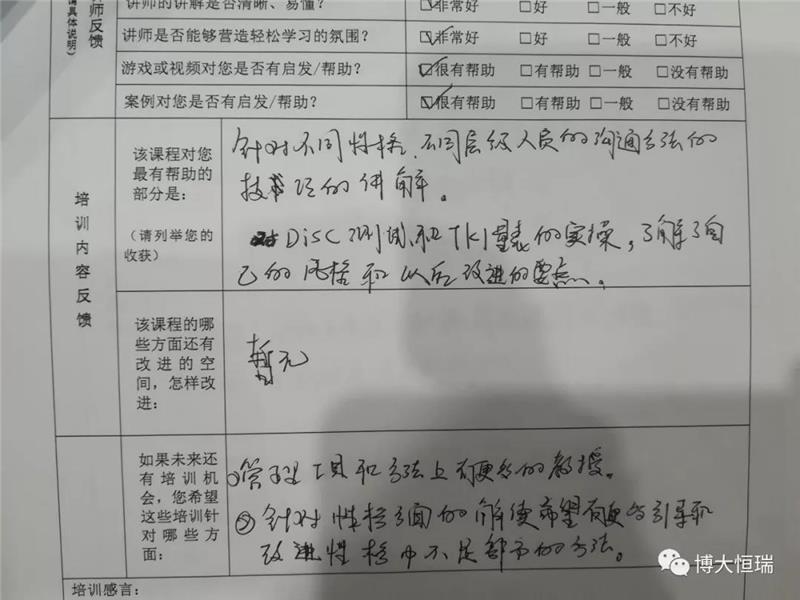 讲师的讲解是否清晰、易懂？ ☑非常好 □好 □一般 □不好
师反馈
情具体说明）
讲师是否能够营造轻松学习的氛围？ ☑非常好 □好 □一般 □不好
游戏或视频对您是否有启发/帮助？ ☑很有帮助 □有帮助 □一般 □没有帮助
案例对您是否有启发/帮助？ ☑很有帮助 □有帮助 □一般 □没有帮助
培训内容反馈
该课程对您
最有帮助的
部分是：
（请列举您的
收获）
针对不同性格、不同层级人员的沟通方法的
技巧的讲解。
对DiSC测试和TKI量表的实操，了解了自
己的风格和以后改进的要点。
该课程的哪
些方面还有
改进的空
间，怎样改
进：
暂无
如果未来还
有培训机
会，您希望
这些培训针
对哪些方
面：
①管理工具和方法上有更多的教授。
②针对性格方面的解读希望有更多引导和
改进性格中不足部分的方法。
培训感言：
博大恒瑞